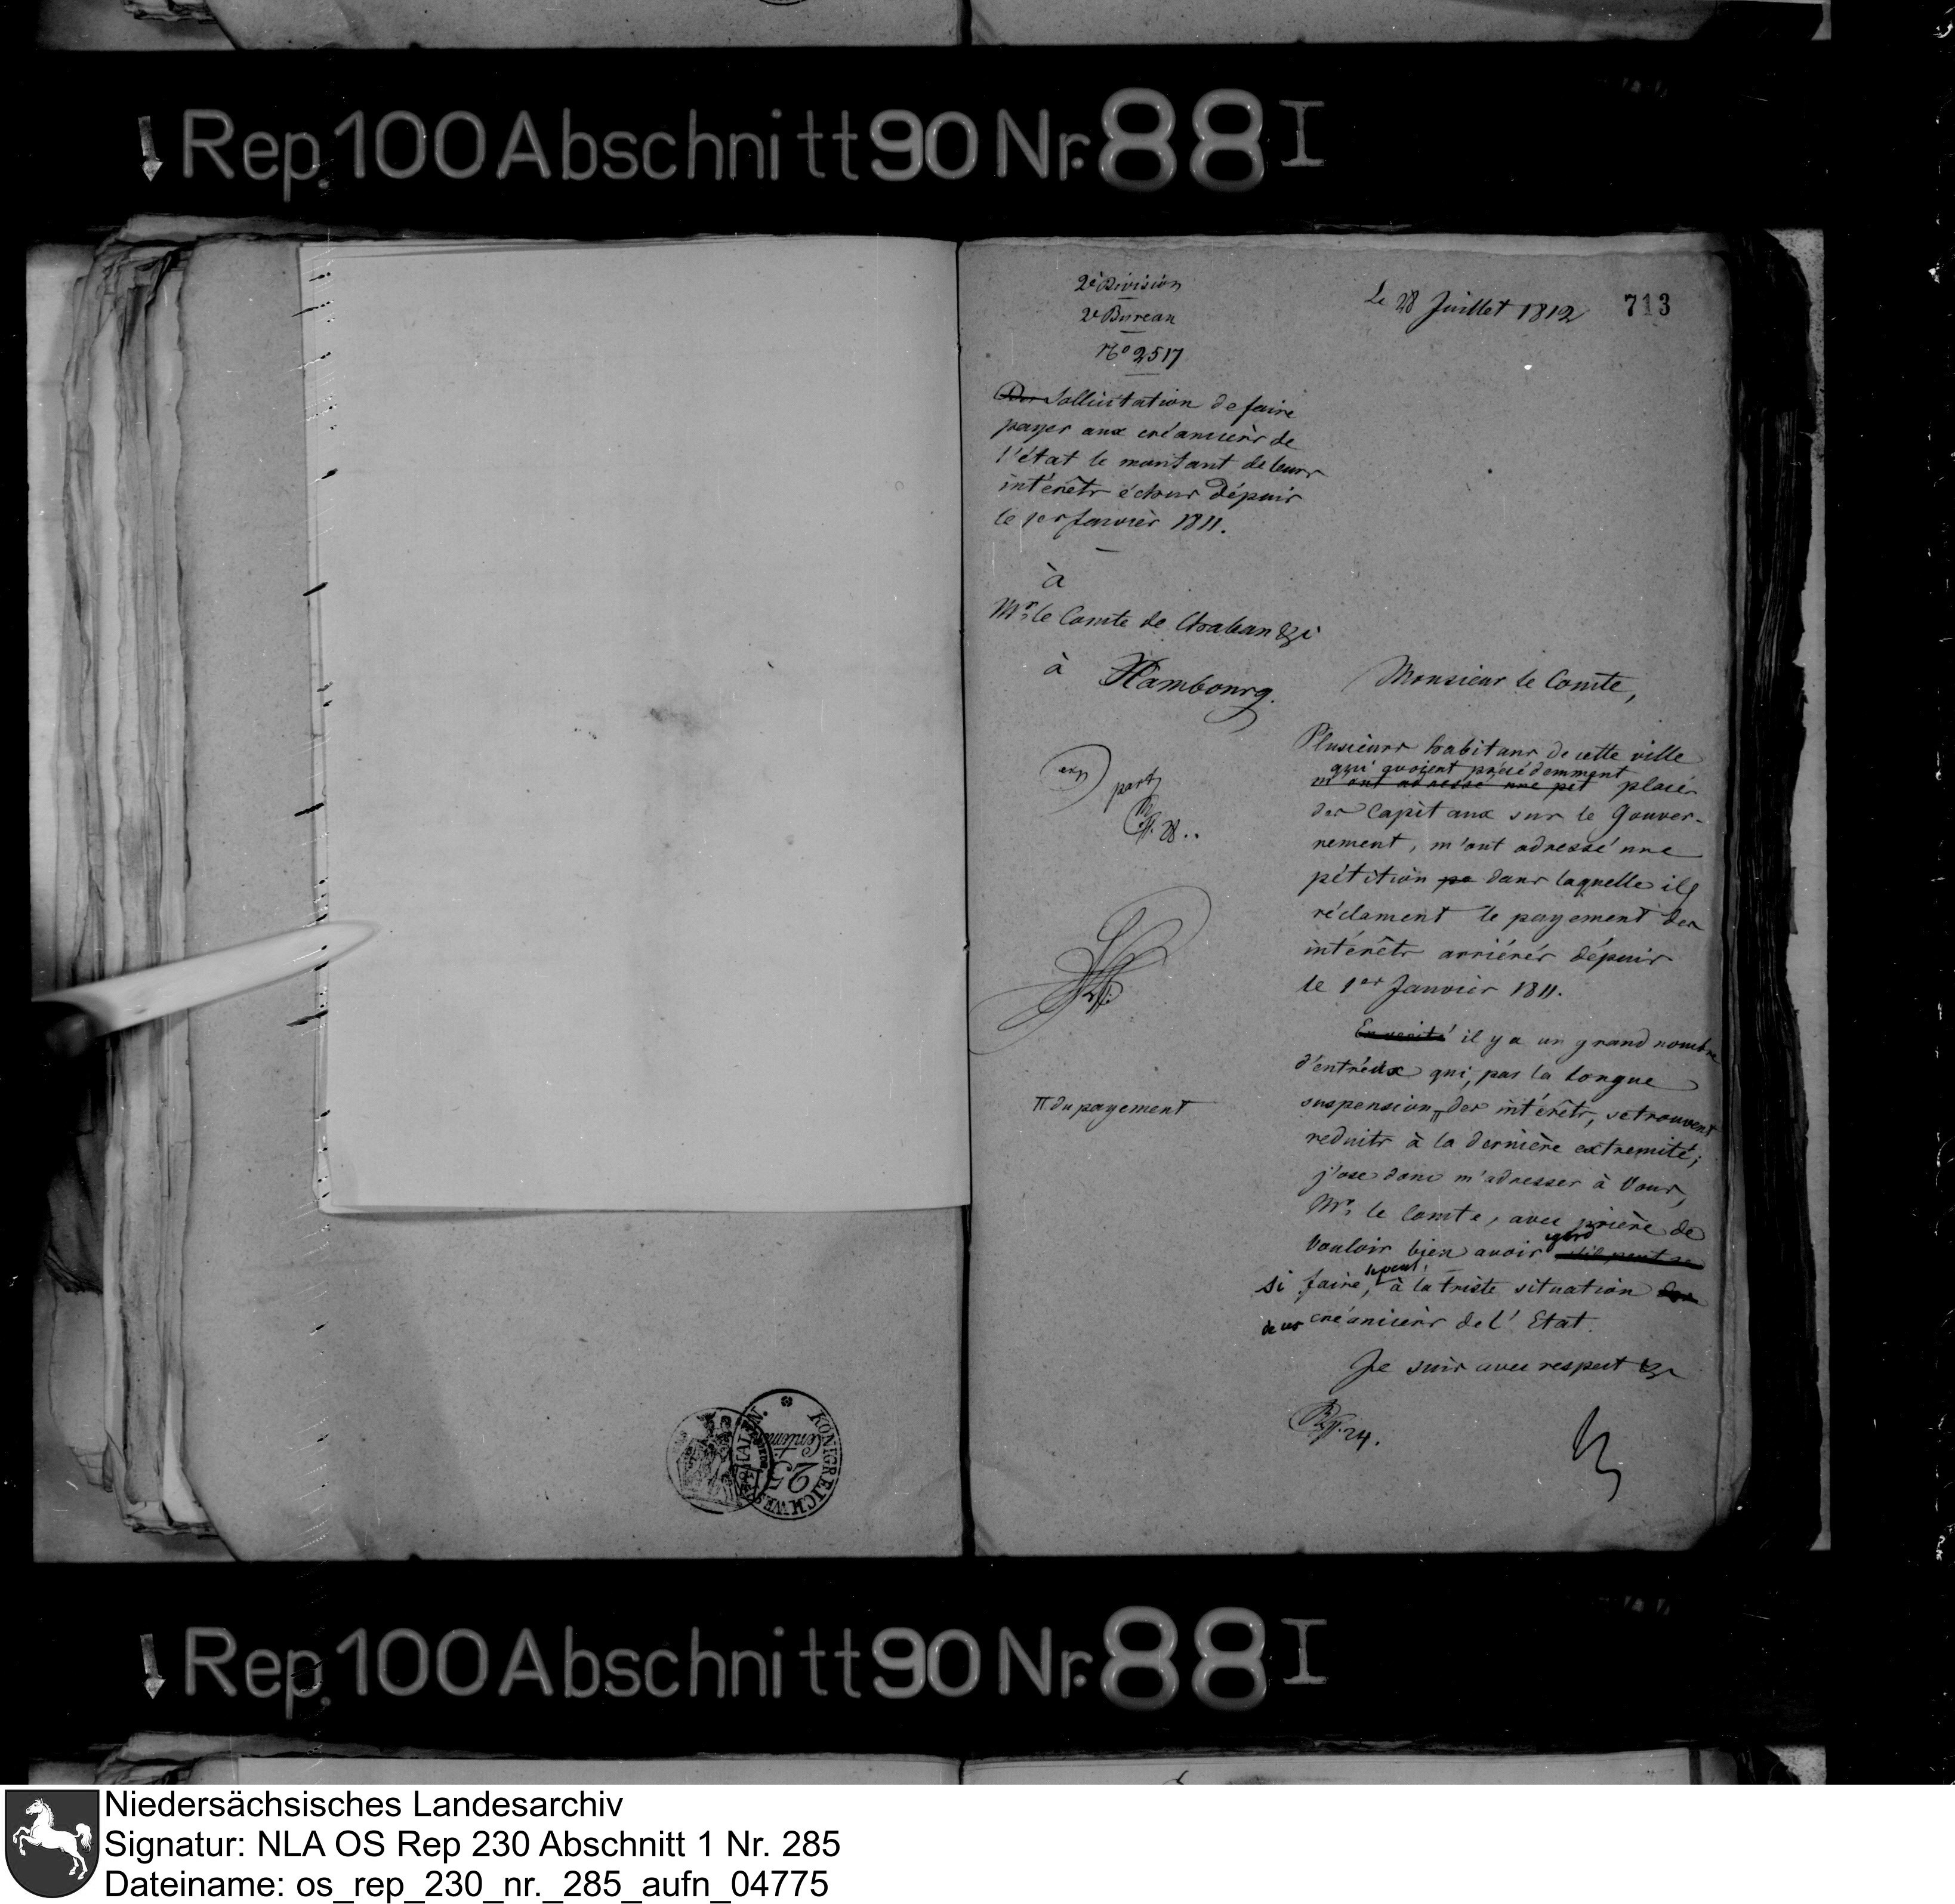 Rep. 100 Abschnitt 90 Nr. 88 I
2e Division
2e Bureau
No 2517
Le 28 Juillet 1812
713
Sollicitation de faire
payer aux créanciers de
l'état le montant de leurs
intérêts échus dépuis
le 1er Janvier 1811.
à
Mr. le Comte de Chaban &c
à Hambourg.
Monsieur le Comte,
Plusieurs habitans de cette ville
qui avoient précédemment
m'ont adressé une pet placé
des Capitaux sur le Gouver-
nement, m'ont adressé une
pétition pe dans laquelle ils
réclament le payement des
intérêts arriérés dépuis
le 1er Janvier 1811.
En verité il y a un grand nombre
d'entréux qui, par la longue
suspension des intérêts, se trouvent
π du payement
reduits à la dernière extremité;
j'ose donc m'adresser à Vous,
Mr. le Comte, avec prière de
vouloir bien avoir egard s'il peut se
si faire, se peut, à la triste situation
de ces créanciers de l'Etat.
Je suis avec respect &c
24.
KÖNIGREICH WESTPHALEN.
25
Centimes
Rep. 100 Abschnitt 90 Nr. 88 I
Niedersächsisches Landesarchiv
Signatur: NLA OS Rep 230 Abschnitt 1 Nr. 285
Dateiname: os_rep_230_nr._285_aufn_04775